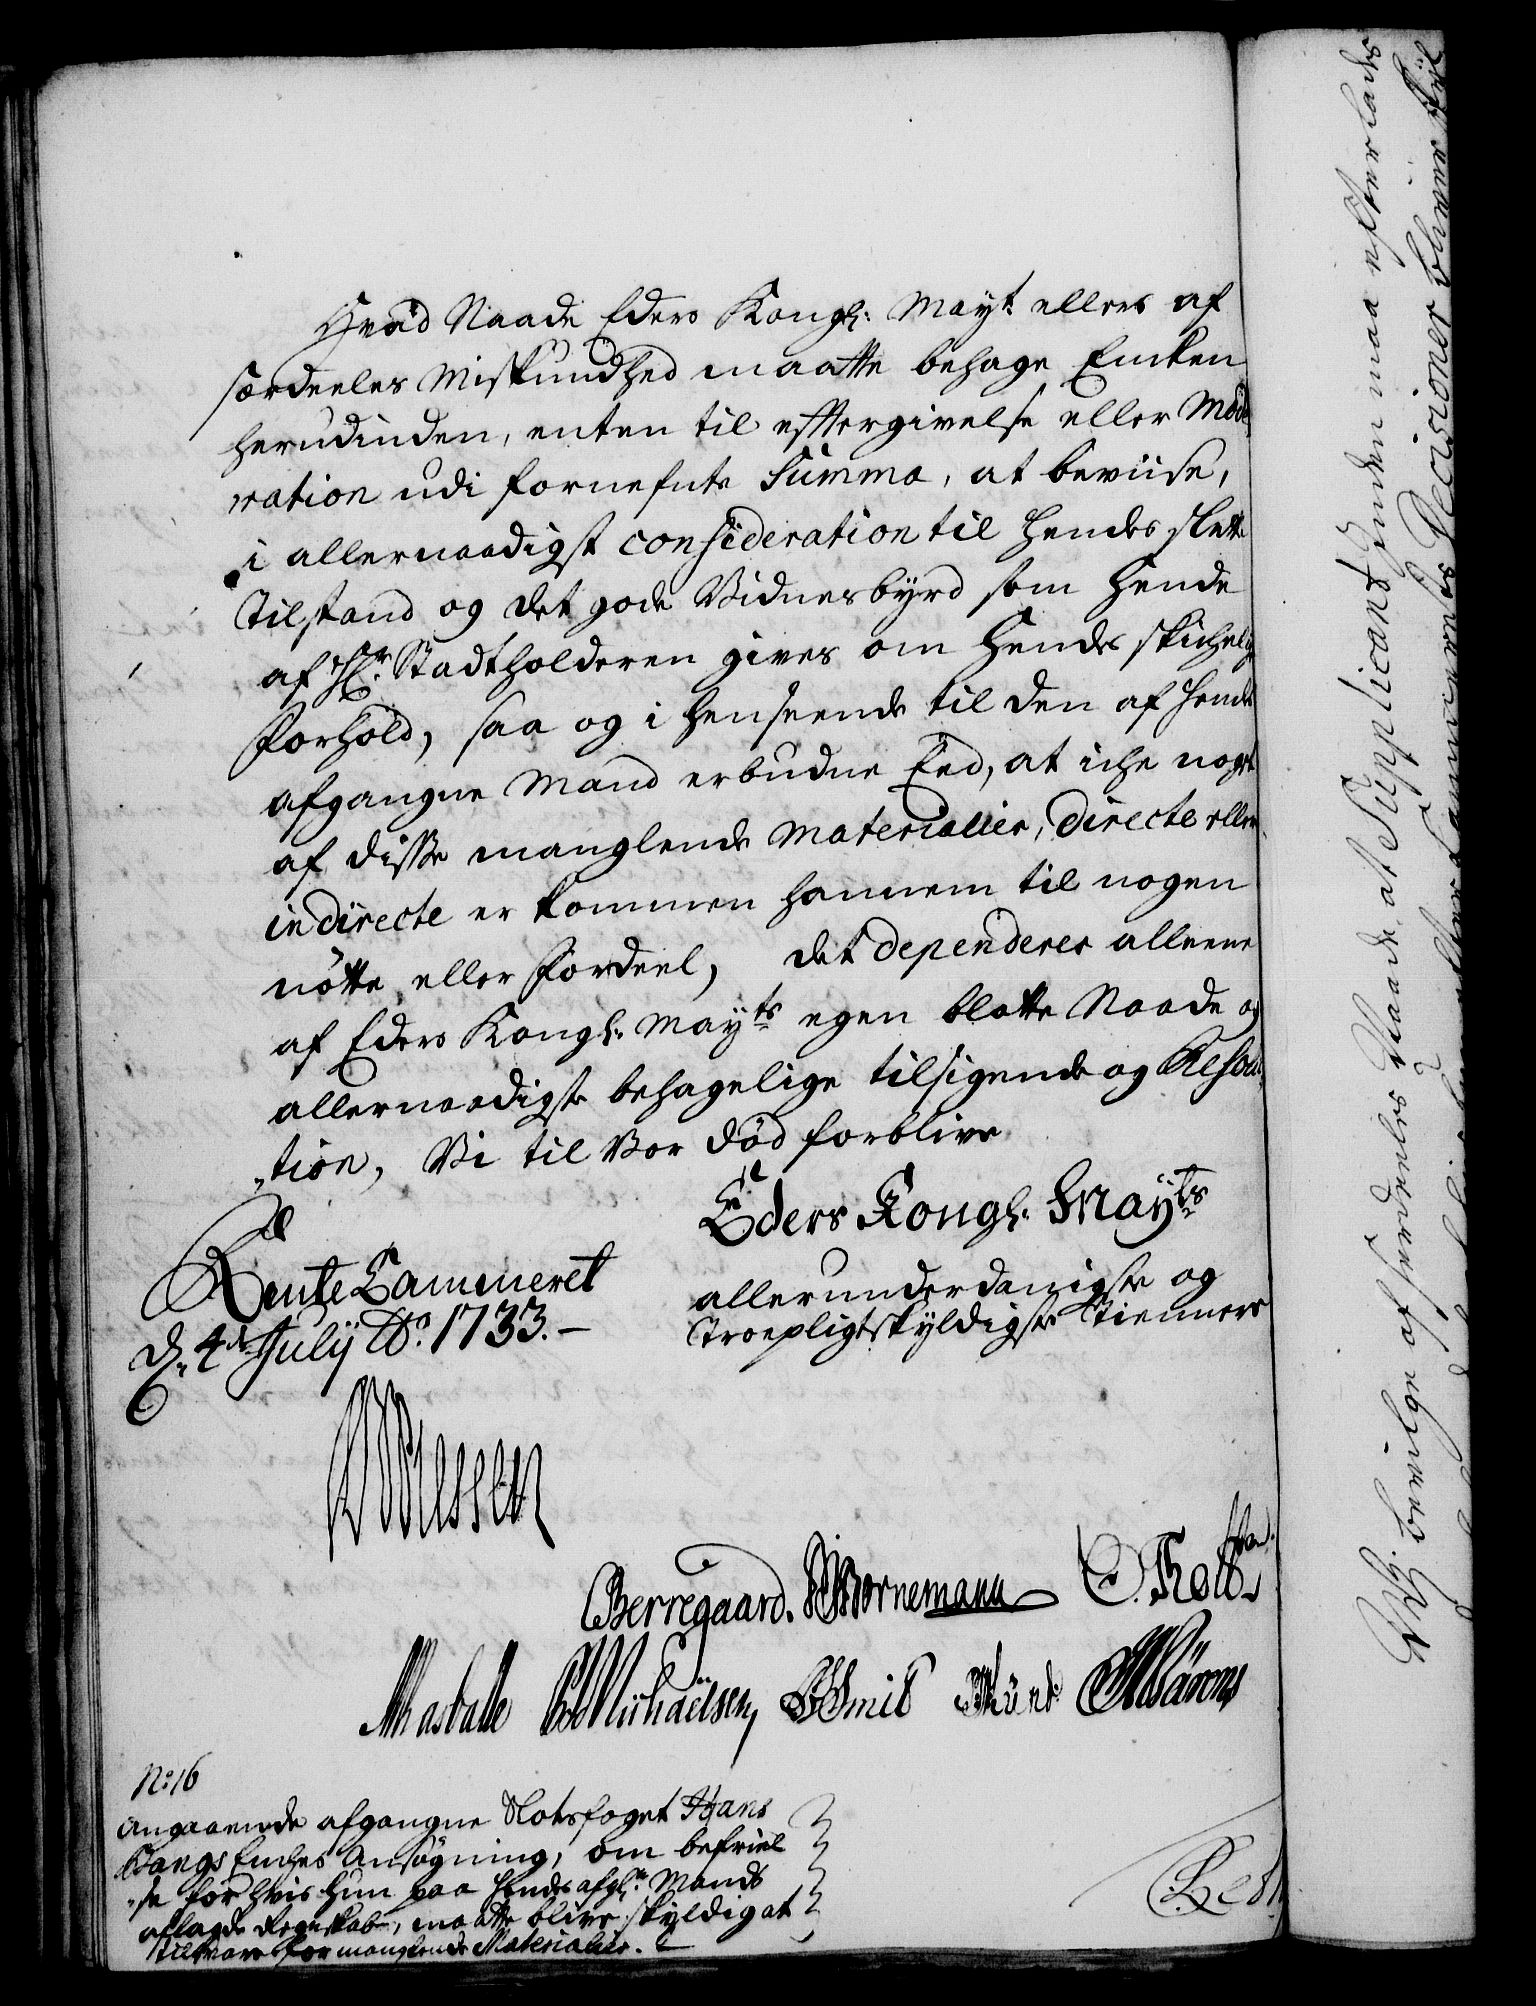 Hvad Naade Eders Kongl: Mayt. ellers af
særdeeles Miskundhed maatte behage Encken
herudinden, enten til efftergivelse eller Mode
ration udi fornefnte Summa, at beviise,
i allernaadigst consideration til hendes slette
Tilstand og det gode Vidnesbyrd som hende
af Hr. Stadtholderen gives om hendes skichelige
Forhold, saa og i henseende til den af hendes
afgangne Mand erbudne Eed, at iche noget
af disse manglende Materialier, directe eller
indirecte er kommen hannem til nogen
nötte eller Fordeel, det dependerer alleene
af Eders Kongl: Mayts egen blotte Naade og
allernaadigste behagelige tilsigende og Resolu
„tion, Vi til Vor Död forblive
Eders Kongl: Mayts
allerunderdanigste og
Troepligtskyldigste Tiennere
RenteCammeret
d. 4de Julij Ao. 1733. –
Berregaard. Bornemann
Michaelsen,
No: 16
angaaende afgangne Slotsfoget Hans
Bangs Enches Ansögning, om befriel
„se for hvis hun paa hendes afgl. Mands
aflagde Regnskab, maatte blive skyldig at
tilsvare for manglende Materialier. –
Wj bevilge af særdeeles Naade, at Supplicantinden maa efterlades